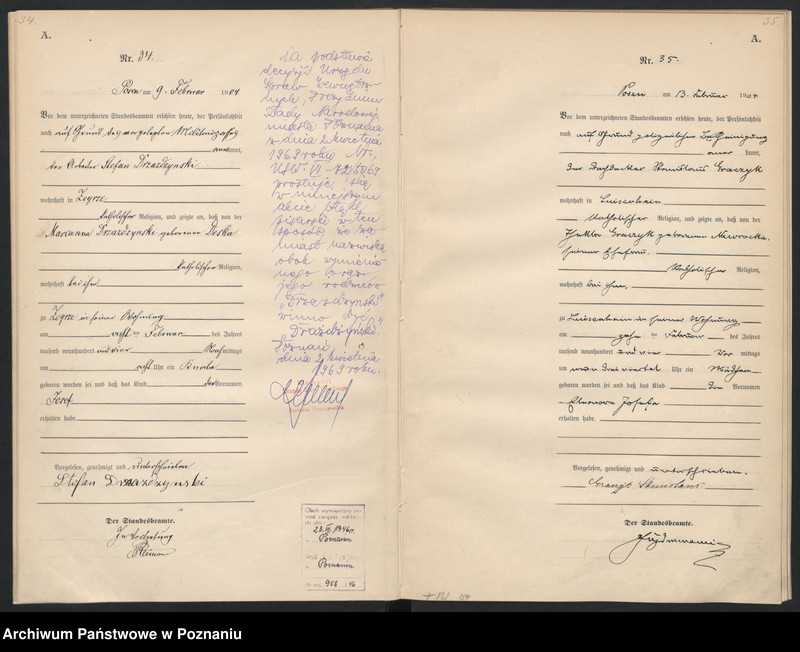 34
A.
Nr. 34.
Posen am 9. Februar 1904
Vor dem unterzeichneten Standesbeamten erschien heute, der Persönlichkeit
nach auf Grund des vorgelegten Militärpasses
kannt,
der Arbeiter Stefan Drzazdzynski
wohnhaft in Zegrze
katholischer Religion, und zeigte an, daß von der
Marianna Drzazdzynski geborenen Deska
katholischer Religion,
wohnhaft bei ihm
zu Zegrze in seiner Wohnung
am acht ten Februar des Jahres
tausend neunhundert und vier Nachmittags
um acht Uhr ein Knabe
geboren worden sei und daß das Kind den Vornamen
Josef
erhalten habe
Vorgelesen, genehmigt und unterschrieben
Stefan Drzazdzynski
Der Standesbeamte.
In Vertretung
Na podstawie
decyzji Urzędu
Spraw Wewnętrz-
nych, Prezydium
Rady Narodowej
miasta Poznania
z dnia 2 kwietnia
1969 roku Nr.
USW. VI-725/69
prostuje się
w niniejszym
akcie błąd
pisarski w ten
sposób, że za-
miast nazwiska
obok wymienio-
nego oraz
jego rodziców
"Drzazdzynski"
winno być
"Drażdżyński".
Poznań,
dnia 2 kwietnia
1969 roku.
23. IX. 1946 r.
Poznaniu
Poznaniu
958/46
35
A.
Nr. 35.
Posen am 13. Februar 1904
Vor dem unterzeichneten Standesbeamten erschien heute, der Persönlichkeit
nach auf Grund polizeilicher Bescheinigung
kannt,
der Dachdecker Stanislaus Graczyk
wohnhaft in Luisenhain
katholischer Religion, und zeigte an, daß von der
Graczyk geborenen Nawrocka,
seiner Ehefrau,
katholischer Religion,
wohnhaft bei ihm,
zu Luisenhain in seiner Wohnung
am zehn ten Februar des Jahres
tausend neunhundert und vier Vor mittags
um Uhr ein Mädchen
geboren worden sei und daß das Kind die Vornamen
Eleonora Josefa
erhalten habe.
Vorgelesen, genehmigt und unterschrieben.
Stanislaus
Der Standesbeamte.
Archiwum Państwowe w Poznaniu